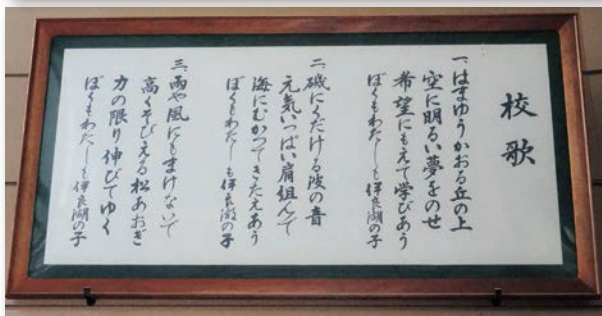 校歌
一、はまゆうかおる丘の上
空に明るい夢をのせ
希望にもえて学びあう
ぼくもわたしも伊良湖の子
二、磯にくだける波の音
元気いっぱい肩組んで
海にむかってきたえあう
ぼくもわたしも伊良湖の子
三、雨や風にもまけないで
高くそびえる松あおぎ
力の限り伸びてゆく
ぼくもわたしも伊良湖の子